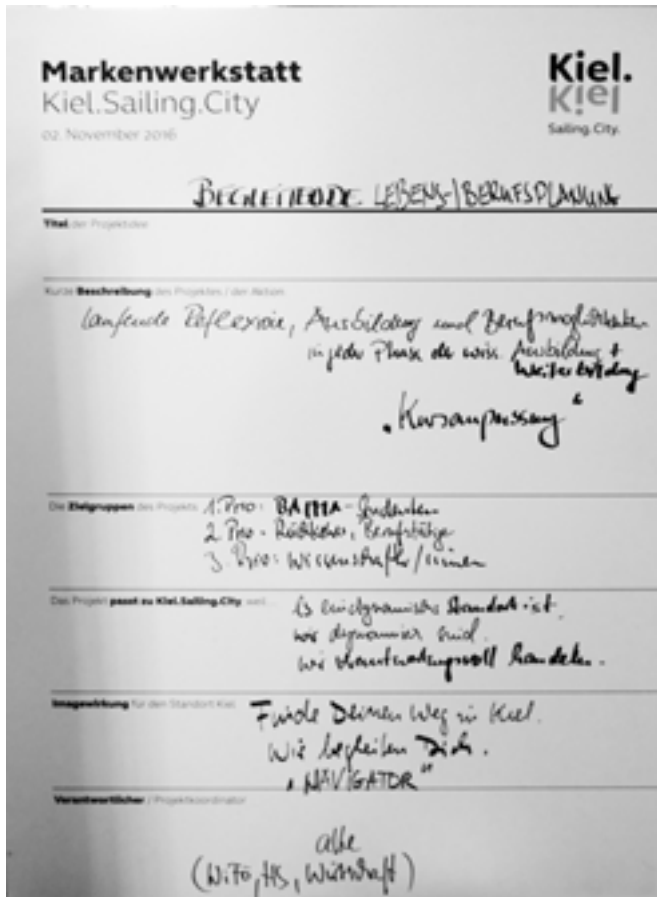 Markenwerkstatt
Kiel.Sailing.City
02. November 2016
Kiel.
Kiel
Sailing.City.
BEGLEITENDE LEBENS-/BERUFSPLANUNG
Titel der Projektidee
Kurze Beschreibung des Projektes / der Aktion
laufende Reflexion, Ausbildung und Berufsmöglichkeiten
in jeder Phase der wiss. Ausbildung +
Weiterbildung
"Kursanpassung"
Die Zielgruppen des Projekts 1. Prio: BA/MA-Studenten
2. Prio - Rückkehrer, Berufstätige
3. Prio: Wissenschaftler/innen
Das Projekt passt zu Kiel.Sailing.City, weil... Es ein dynamischer Standort ist.
wir dynamisch sind.
wir verantwortungsvoll handeln.
Imagewirkung für den Standort Kiel Finde Deinen Weg in Kiel.
Wir begleiten Dich.
"NAVIGATOR"
Verantwortlicher / Projektkoordinator
alle
(WiFö, HS, Wirtschaft)